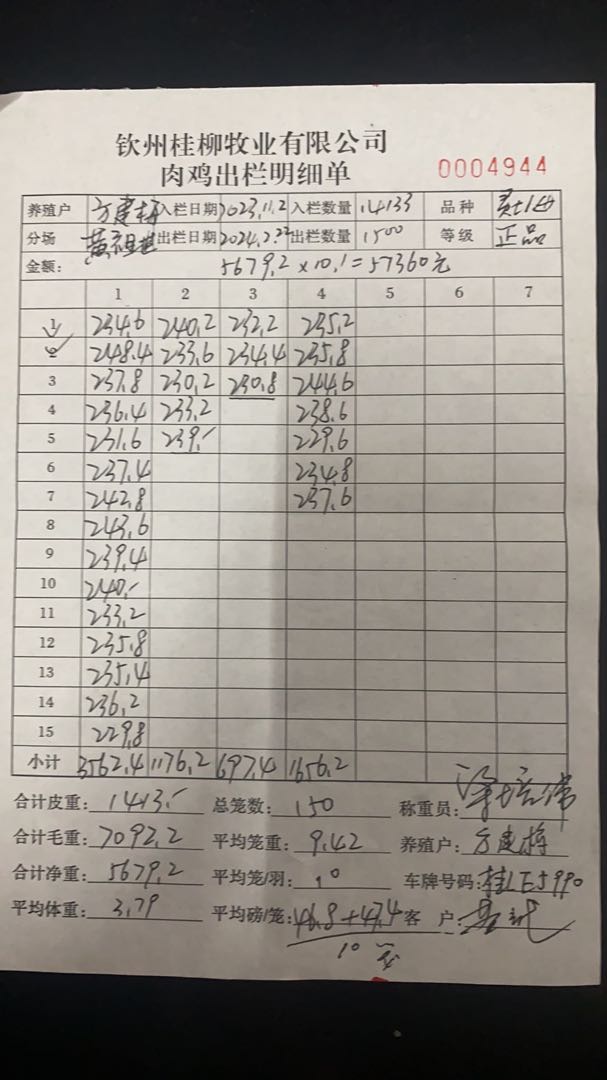 钦州桂柳牧业有限公司
肉鸡出栏明细单
0004944
养殖户 方建梅 入栏日期 2023.11.2 入栏数量 14133 品种
分场 出栏日期 2024.2.22 出栏数量 1500 等级 正品
金额: 5679.2 × 10.1 = 57360元
1 2 3 4 5 6 7
1 234.6 240.2 232.2 235.2
2 248.4 233.6 234.4 235.8
3 237.8 230.2 230.8 244.6
4 236.4 233.2 238.6
5 231.6 239.- 229.6
6 237.4 234.8
7 242.8 237.6
8 243.6
9 239.4
10 240.-
11 233.2
12 235.8
13 235.4
14 236.2
15 229.8
小计 3562.4 1176.2 697.4 1656.2
合计皮重: 1413.- 总笼数: 150 称重员:
合计毛重: 7092.2 平均笼重: 9.42 养殖户: 方建梅
合计净重: 5679.2 平均笼/羽: 10 车牌号码: 桂LE5990
平均体重: 3.79 平均磅/笼: 46.8+47.4 客 户:
10